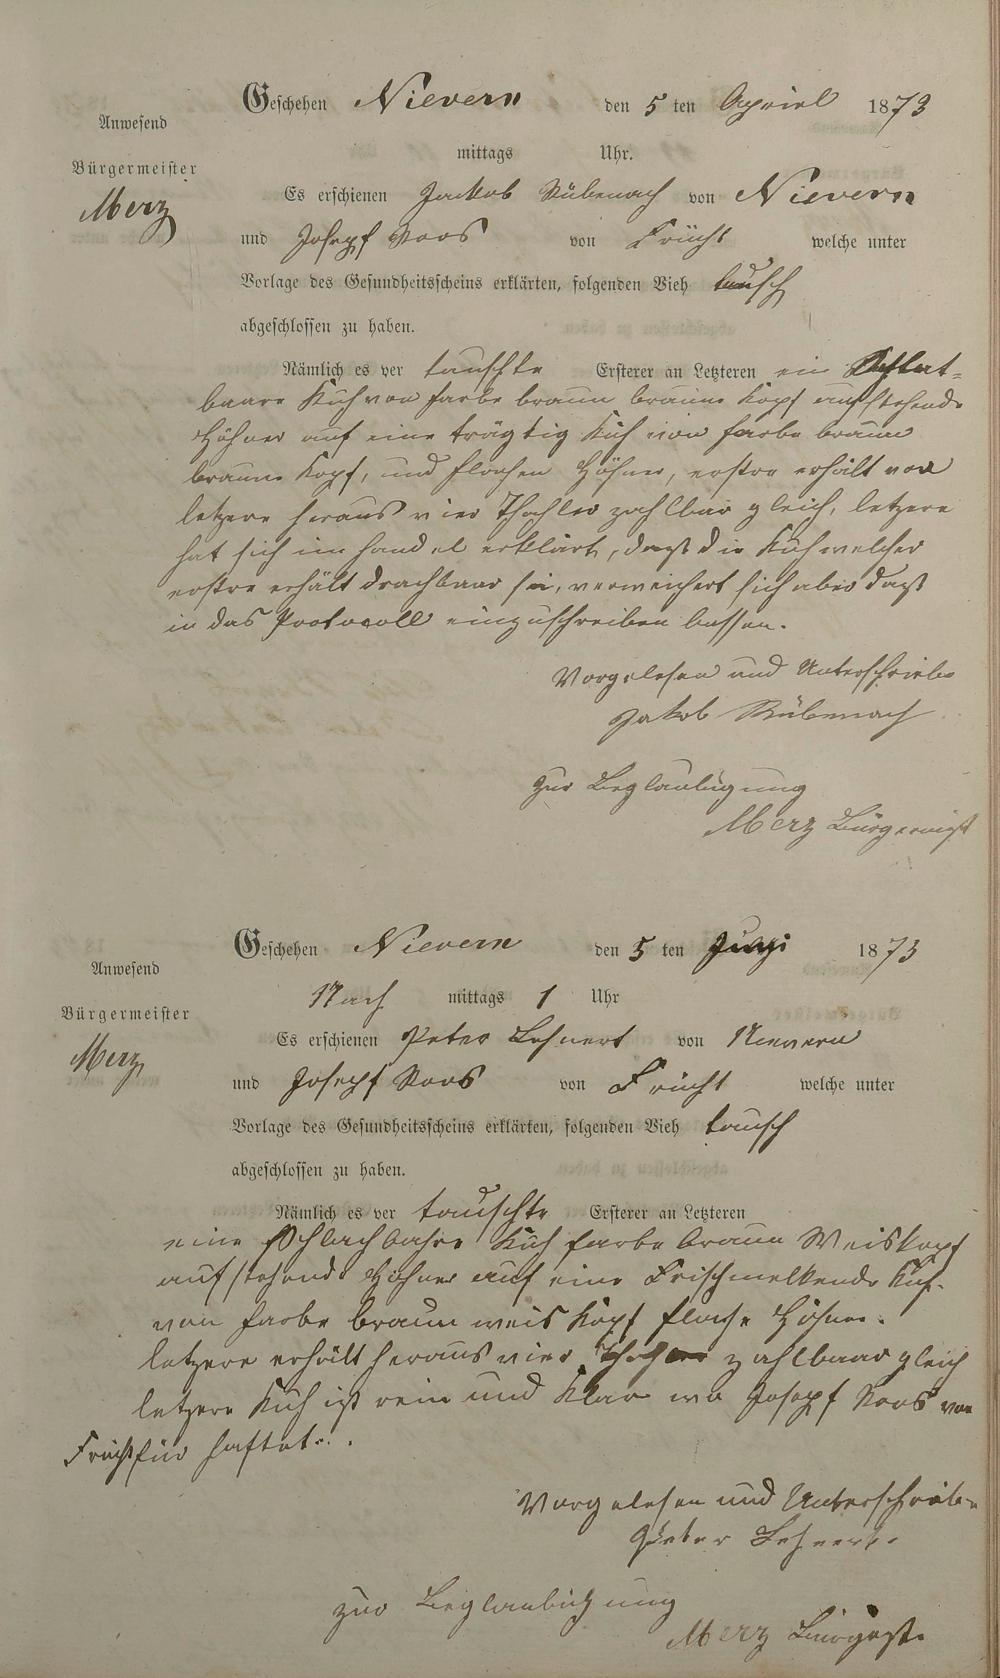 Geschehen Nievern den 5 ten Apriel 1873
Anwesend
mittags Uhr.
Bürgermeister
Merz
Es erschienen Jackob Rübenach von Nievern
und Josepf Roos von Frücht welche unter
Vorlage des Gesundheitsscheins erklärten, folgenden Vieh tausch
abgeschlossen zu haben.
Nämlich es ver tauschte Ersterer an Letzteren ein Schlat-
baare Kuh von farbe braun braune Kopf aufstehende
Höhner auf eine trägtig Kuh von farbe braun
braune Kopf, und flachen Höhner, erstre erhält von
letzere heraus vier Thahler zahlbar gleich, letzere
hat sich im handel erklärt, daß die Kuh welcher
erstre erhält drachbaar sei, verweichert sich aber daß
in das Protocoll einzuschreiben lassen.
Vorgelesen und Unterschrieben
Jakob Rübenach
Zur Beglaubigung
Merz Bürgermst
Geschehen Nievern den 5 ten Juni 1873
Anwesend
Nach mittags 1 Uhr
Bürgermeister
Merz
Es erschienen Peter Lehnert von Nievern
und Josepf Roos von Frücht welche unter
Vorlage des Gesundheitsscheins erklärten, folgenden Vieh tausch
abgeschlossen zu haben.
Nämlich es ver tauschte Ersterer an Letzteren
eine Schlachbahre Kuh farbe braun Weiskopf
aufstehende Höhner auf eine Frischmelkende Kuh.
von farbe braun weis Kopf flache Höhner.
letzere erhält heraus vier Thahler zahlbaar gleich
letzere Kuh ist rein und Klar wo Josepf Roos von
Frücht für haftet.
Vorgelesen und Unterschrieben
Peter Lehnert.
zur Beglaubichung
Merz Bürgmst.